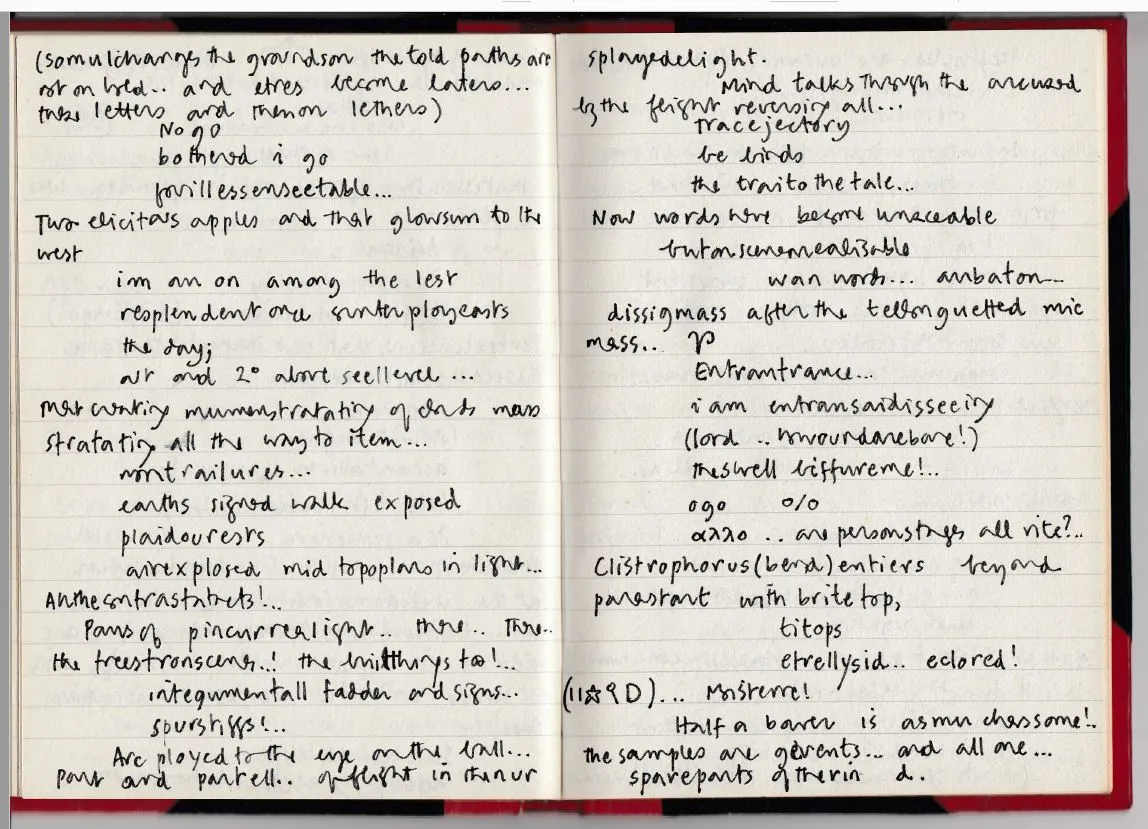 (somulchanges the groundson the told paths are
not on hold.. and etres become laters...
these letters and thenon lethers)
No go
bothered i go
forillessenseetable...
Two elicitous apples and that glowsum to the
west
im an on among the lest
resplendent once sunterploycasts
the day;
air and 2° above seellevel ...
stratating all the way to item...
nontrailures...
earths signed walk exposed
plaidourests
airexplosed mid topoplans in light...
Anthecontrastatrets!...
Pans of pincurrealight.. there.. There..
the treestronscenes..! the builtthings too!...
integumentall fadder and signs...
sourstiffs!...
Arc ployed to the eye on the ball...
Part and partell.. of flight in thenur
splayedelight.
Mind talks through the arcused
by the flight reversing all...
tracejectory
be birds
the traitothetale...
Now words here become unaceable
butonscenerealisable
wan words... anbaton...
dissigmass after the tellonguetted mic
mass...
Entrantrance...
i am entransaidisseeing
(lord ..
theshell biffureme!..
ogo o/o
αλλο .. are personstages all rite?..
Clistrophorus(bend)entiers beyond
parastant with brite top,
titops
etrellysid.. eclored!
(11☆9D)... Misterre!
Half a baren is asmu chassome!..
the samples are gerents... and all one...
spareparts of therin d.